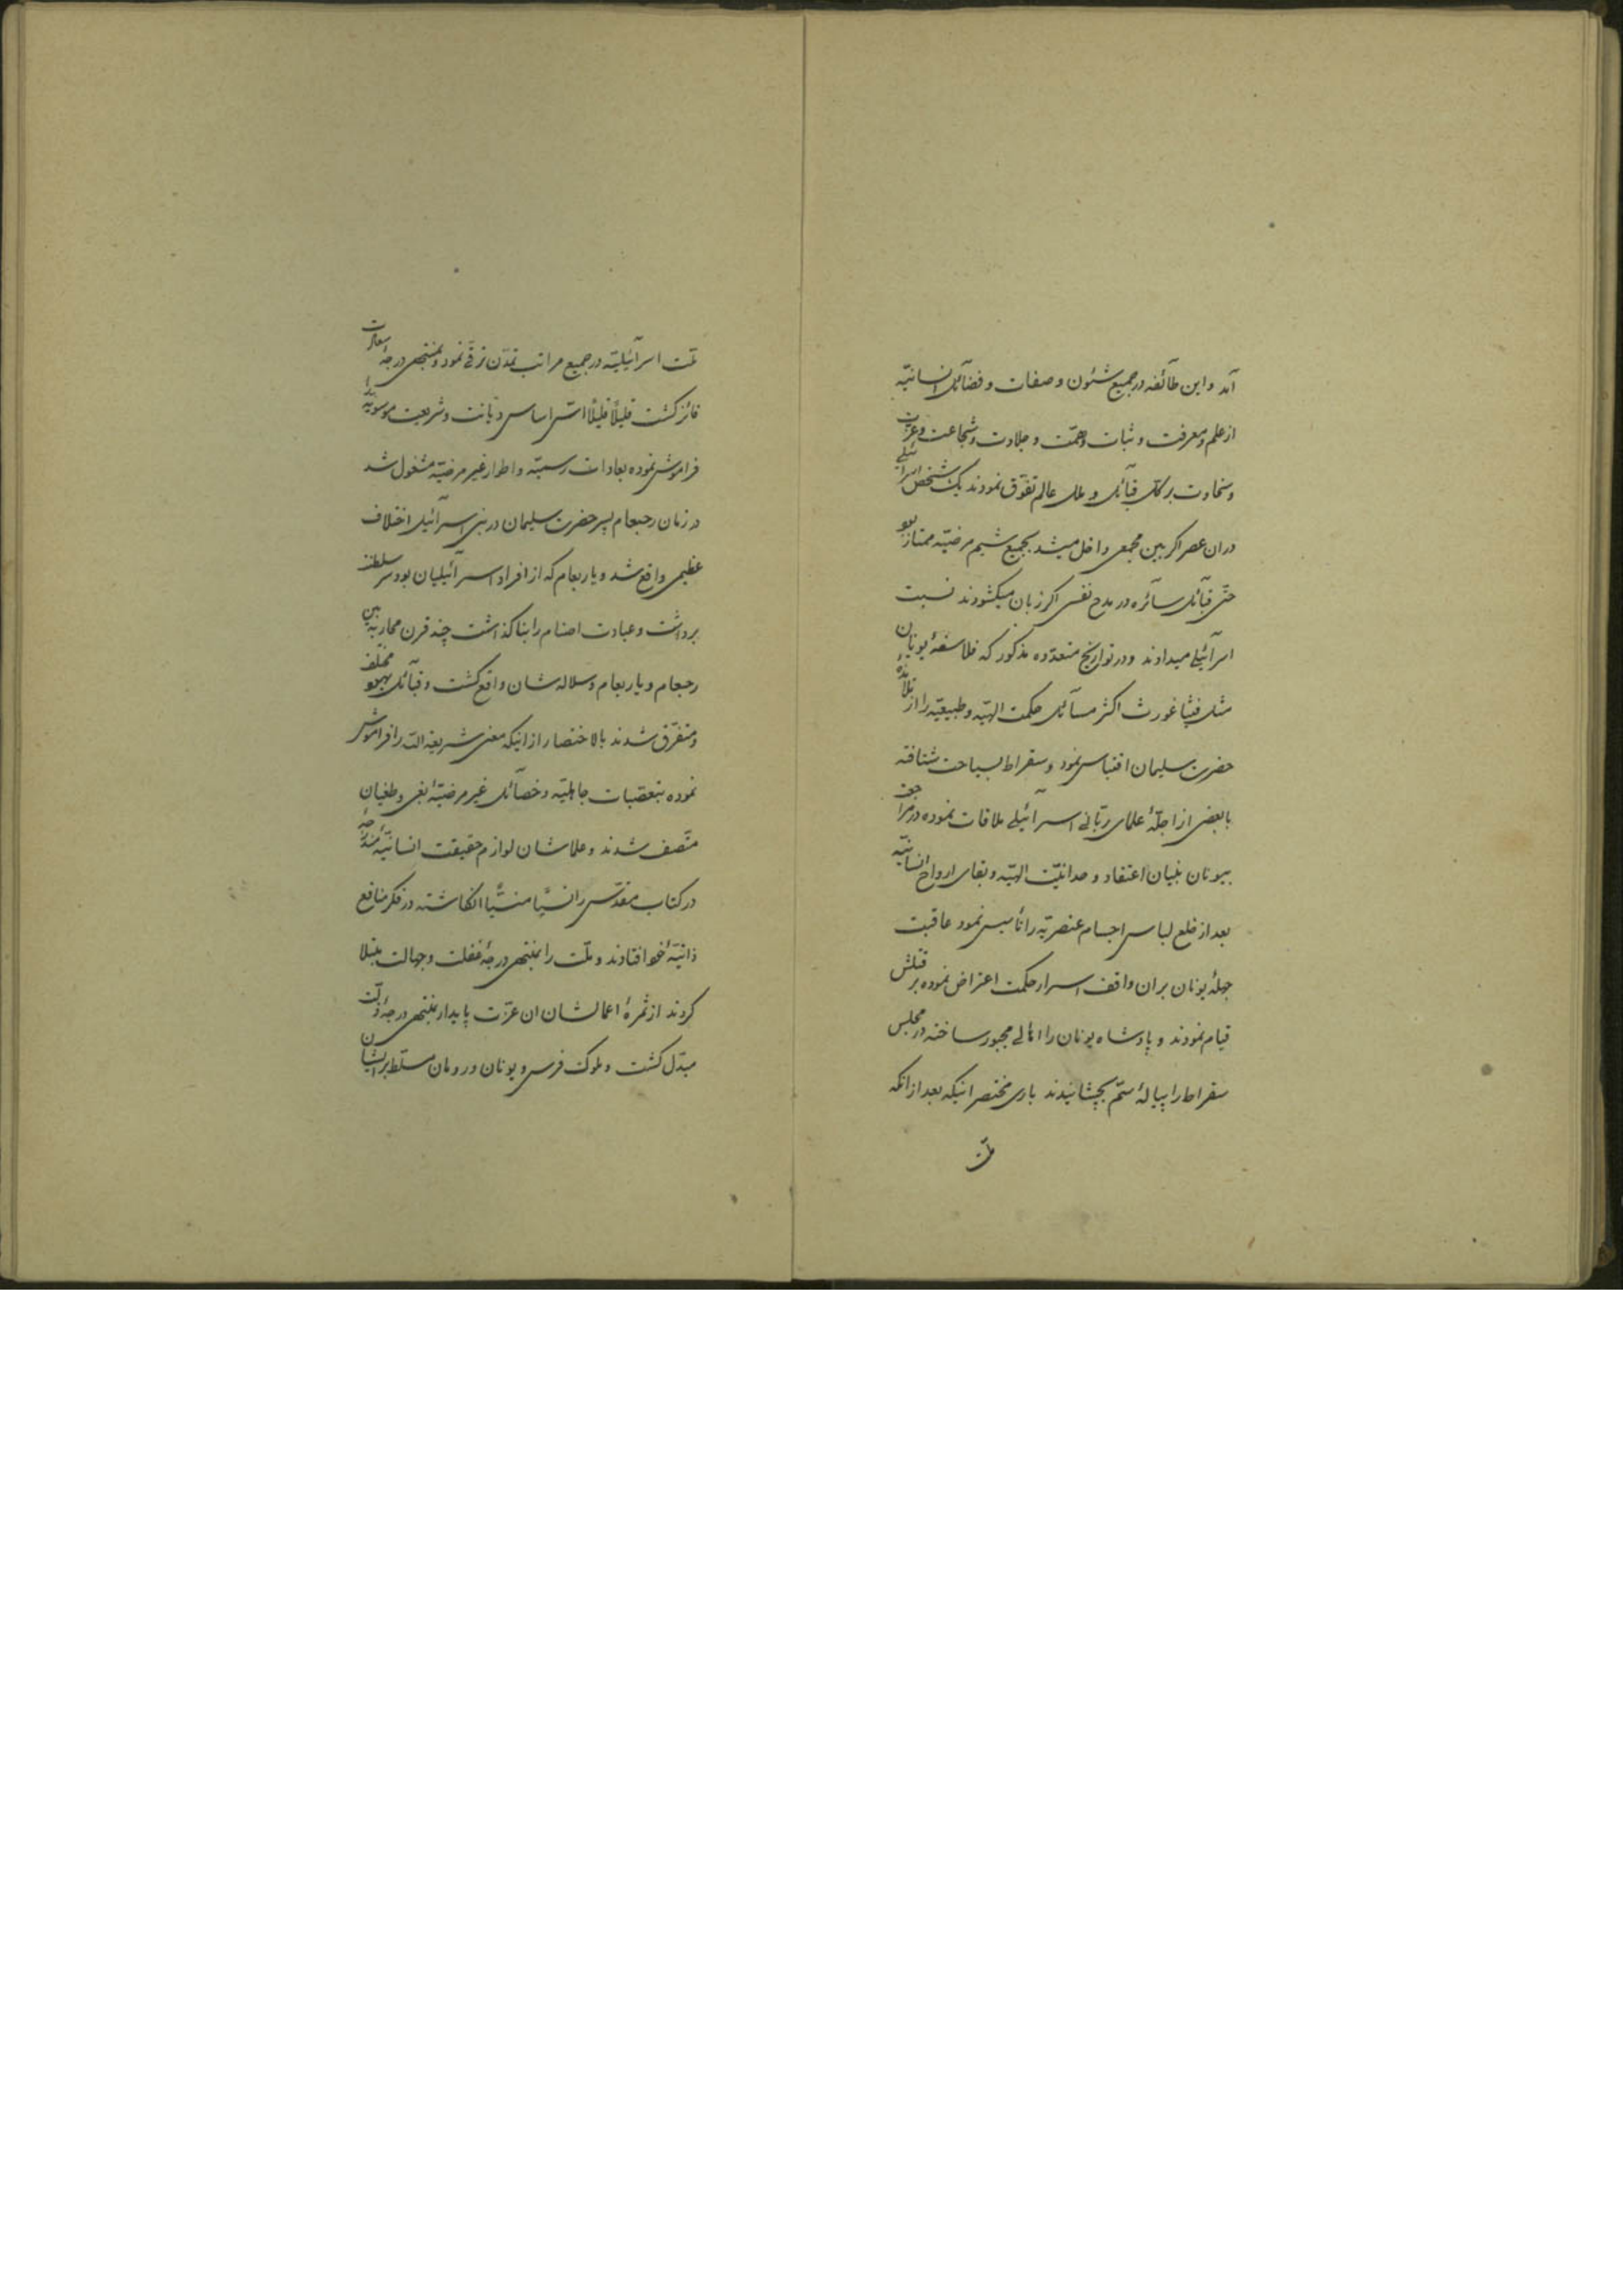 آمد و این طآئفه در جمیع شئون و صفات و فضآئل انسانیّه
از علم و معرفت و ثبات و همّت و جلادت و شجاعت و عزّت
و سخاوت بر کلّ قبآئل و ملل عالم تفوّق نمودند یک شخص اسرائیلی
دران عصر اکر بین مجمعی داخل میشد بجمیع شیم مرضیّه ممتاز بود
حتّی قبآئل سآئره در مدح نفسی اکر زبان میکشودند نسبت
اسرآئیلی میدادند و در تواریخ متعدّده مذکور که فلاسفهٔ یونان
مثل فیثاغورث اکثر مسآئل حکمت الهیّه و طبیعیّه را از تلامذهٔ
حضرت سلیمان اقتباس نمود و سقراط بسیاحت شتافته
با بعضی از اجلّهٔ علمای ربّانی اسرآئیلی ملاقات نموده در مراجعت
بیونان بنیان اعتقاد وحدانیّت الهیّه و بقای ارواح انسانیّه
بعد از خلع لباس اجسام عنصریّه را تأسیس نمود عاقبت
جهلهٔ یونان بران واقف اسرار حکمت اعتراض نموده بر قتلش
قیام نمودند و پادشاه یونان را اهالی مجبور ساخته در مجلس
سقراط را پیالهٔ سمّ بچشانیدند باری مختصر اینکه بعد از انکه
ملّت
ملّت اسرآئیلیّه در جمیع مراتب تمدّن ترقّی نمود و بمنتهی درجهٔ سعادت
فائز کشت قلیلًا قلیلًا اسّ اساس دیانت و شریعت موسویّه را
فراموش نموده بعادات رسمیّه و اطوار غیر مرضیّه مشغول شد
در زمان رحبعام پسر حضرت سلیمان در بنی اسرآئیل اختلاف
عظیمی واقع شد و یاربعام که از افراد اسرآئیلیان بود سر سلطنت
برداشت و عبادت اصنام را بنا کذاشت چند قرن محاربه بین
رحبعام و یاربعام و سلاله‌شان واقع کشت و قبآئل یهود مختلف
و متفرّق شدند بالاختصار از اینکه معنی شریعة اللّه را فراموش
نموده بتعصّبات جاهلیّه و خصآئل غیر مرضیّهٔ بغی و طغیان
متّصف شدند و علماشان لوازم حقیقت انسانیّه مندرجهٔ
در کتاب مقدّس را نسیًا منسیًّا انکاشته در فکر منافع
ذاتیّهٔ خود افتادند و ملّت را بمنتهی درجهٔ غفلت و جهالت مبتلا
کردند از ثمرهٔ اعمالشان ان عزّت پایدار بمنتهی درجهٔ ذلّت
مبدّل کشت و ملوک فرس و یونان و رومان مسلّط بر ایشان